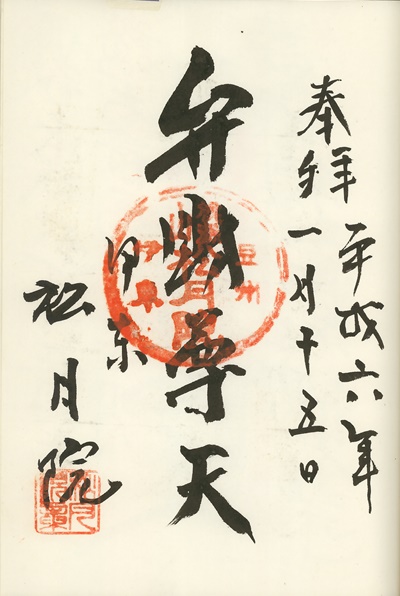 奉拝
平成六年
一月十五日
弁財尊天
伊東
松月院
豆州
伊東